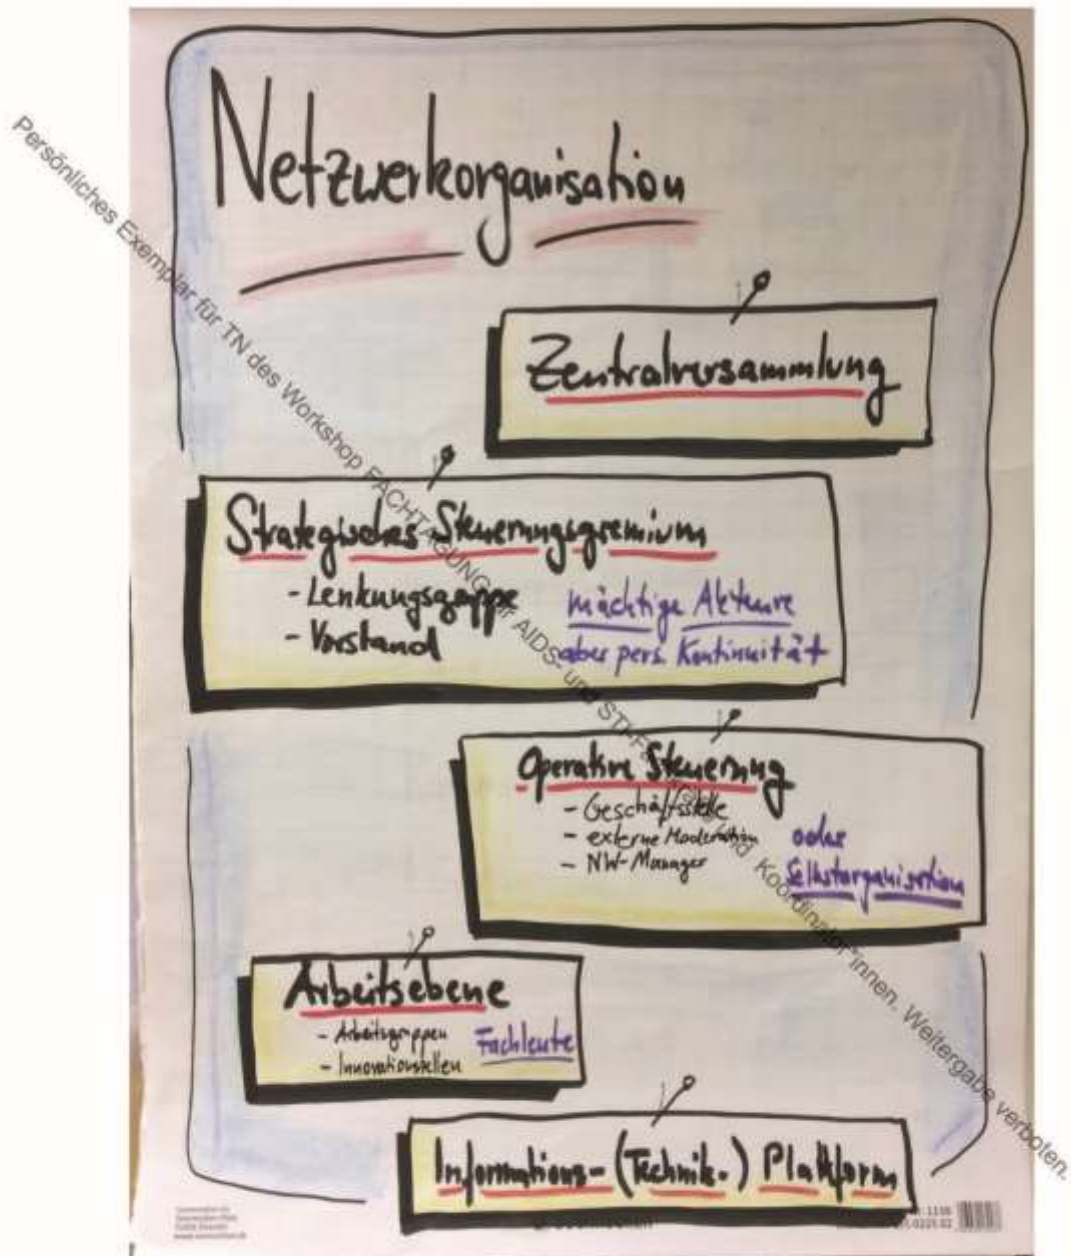 Netzwerkorganisation
Zentralversammlung
Strategisches Steuerungsgremium
- Lenkungsgruppe
- Vorstand
mächtige Akteure
aber pers. Kontinuität
Operative Steuerung
- Geschäftsstelle
- externe Moderation
- NW-Manager
oder
Selbstorganisation
Arbeitsebene
- Arbeitsgruppen
- Innovationszellen
Fachleute
Informations-(Technik-) Plattform
Persönliches Exemplar für TN des Workshop FACHTAGUNG für AIDS- und STI- und Koordinator*innen. Weitergabe verboten.